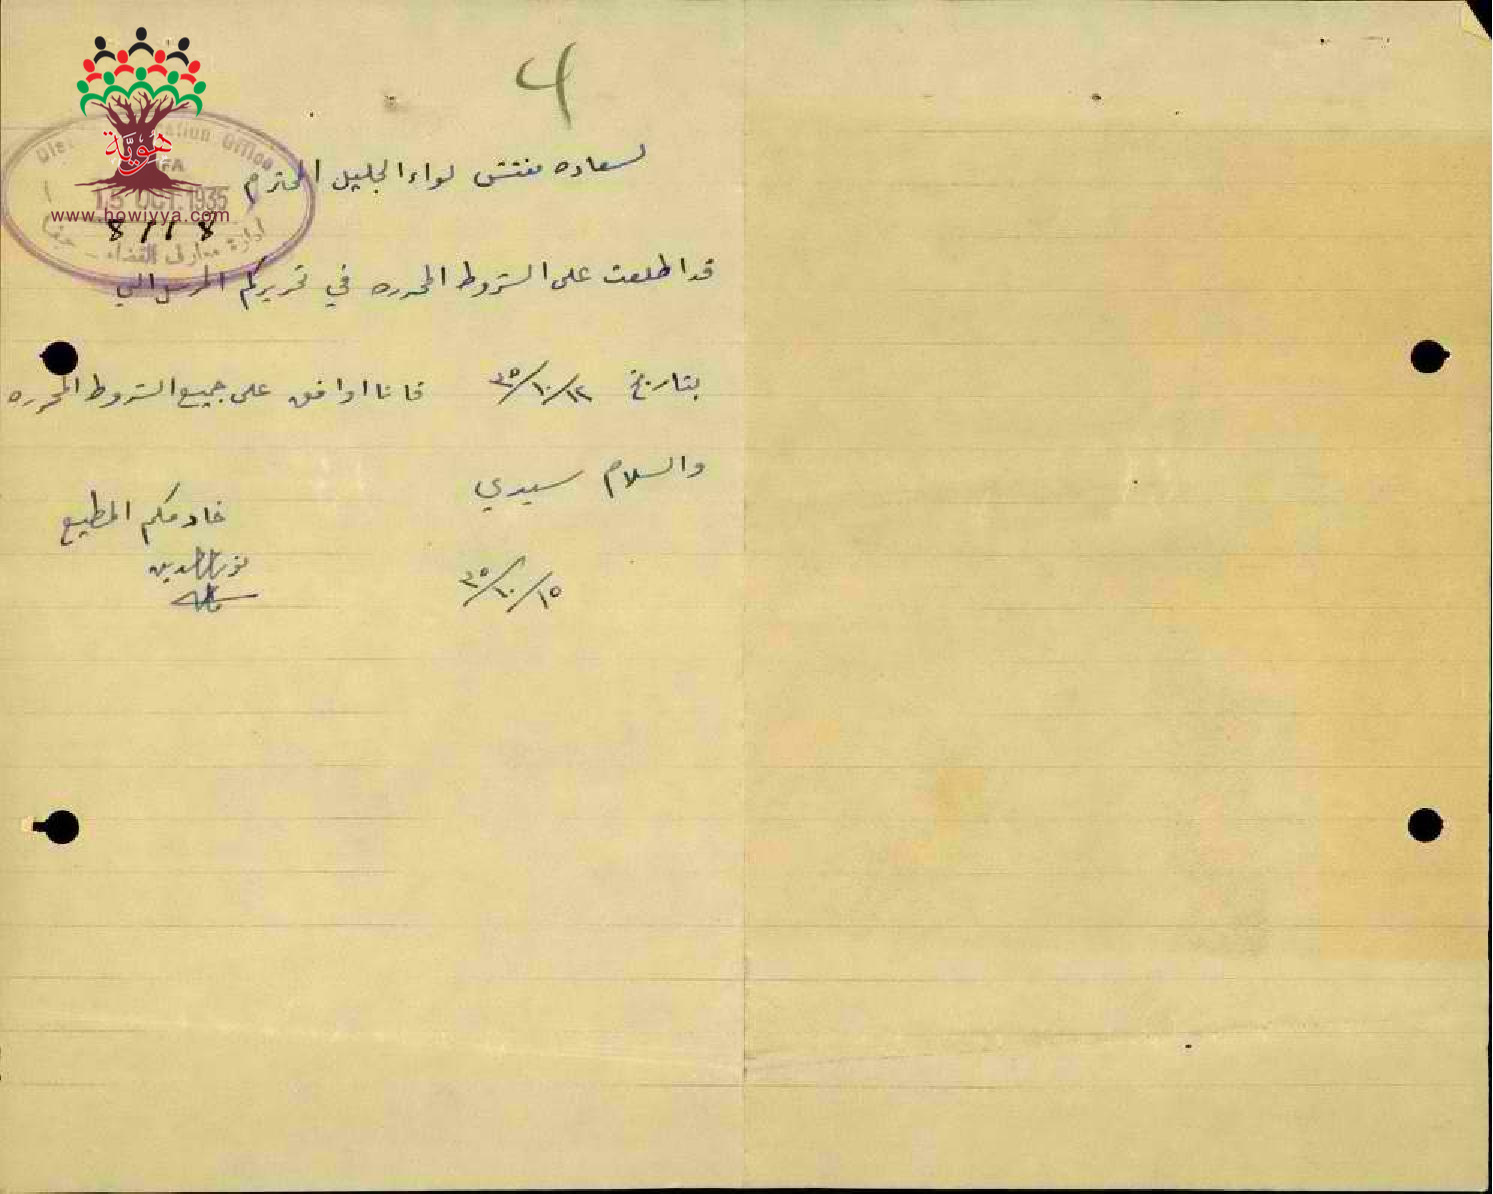 4
District Education Office
15 OCT. 1935
8/1/8
ادارة معارف القضاء - حيفا
هوية
www.howiyya.com
لسعاده مفتش لواء الجليل المحترم
قد اطلعت على الشروط المحرره في تحريركم المرسل الي
بتاريخ ١٢/١٠/٣٥ فانا اوافق على جميع الشروط المحرره
والسلام سيدي
خادمكم المطيع
نور الدين
١٥/١٠/٣٥